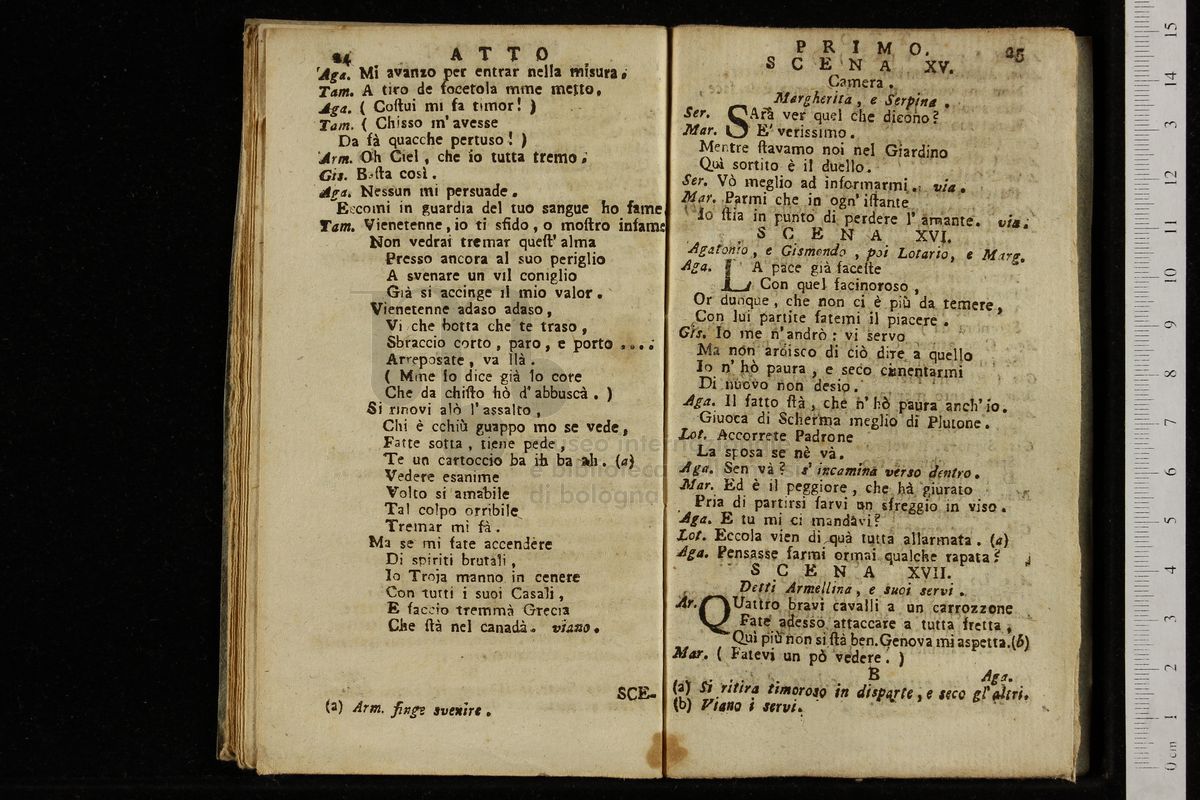 24 ATTO
Aga. Mi avanzo per entrar nella misura.
Tam. A tiro de focetola mme metto,
Aga. ( Coſtui mi fa timor! )
Tam. ( Chisso m' avesse
Da fà quacche pertuso! )
Arm. Oh Ciel, che io tutta tremo.
Gis. Baſta così.
Aga. Nessun mi persuade.
Eccomi in guardia del tuo sangue ho fame.
Tam. Vienetenne, io ti sfido, o moſtro infame
Non vedrai tremar queſt' alma
Presso ancora al suo periglio
A svenare un vil coniglio
Già si accinge il mio valor.
Vienetenne adaso adaso,
Vi che botta che te traso,
Sbraccio corto, paro, e porto ....
Arreposate, va llà.
( Mme lo dice già lo core
Che da chiſto hò d' abbuscà. )
Si rinovi alò l' assalto,
Chi è cchiù guappo mo se vede,
Fatte sotta, tiene pede,
Te un cartoccio ba ih ba ah. (a)
Vedere esanime
Volto si amabile
Tal colpo orribile
Tremar mi fà.
Ma se mi fate accendere
Di spiriti brutali,
Io Troja manno in cenere
Con tutti i suoi Casali,
E faccio tremmà Grecia
Che ſtà nel canadà. viano.
SCE-
(a) Arm. finge svenire.
PRIMO. 25
SCENA XV.
Camera.
Margherita, e Serpina.
Ser. SArà ver quel che dicono?
Mar. E' verissimo.
Mentre ſtavamo noi nel Giardino
Quì sortito è il duello.
Ser. Vò meglio ad informarmi. via.
Mar. Parmi che in ogn' iſtante
Io ſtia in punto di perdere l' amante. via.
SCENA XVI.
Agatonio, e Gismondo, poi Lotario, e Marg.
Aga. LA pace già faceſte
Con quel facinoroso,
Or dunque, che non ci è più da temere,
Con lui partite fatemi il piacere.
Gis. Io me n' andrò: vi servo
Ma non ardisco di ciò dire a quello
Io n' hò paura, e seco cimentarmi
Di nuovo non desio.
Aga. Il fatto ſtà, che n' hò paura anch' io.
Giuoca di Scherma meglio di Plutone.
Lot. Accorrete Padrone
La sposa se nè và.
Aga. Sen và? s' incamina verso dentro.
Mar. Ed è il peggiore, che hà giurato
Pria di partirsi farvi un sfreggio in viso.
Aga. E tu mi ci mandavi?
Lot. Eccola vien di quà tutta allarmata. (a)
Aga. Pensasse farmi ormai qualche rapata?
SCENA XVII.
Detti Armellina, e suoi servi.
Ar. QUattro bravi cavalli a un carrozzone
Fate adesso attaccare a tutta fretta,
Qui più non si ſtà ben. Genova mi aspetta. (b)
Mar. ( Fatevi un pò vedere. )
B Aga.
(a) Si ritira timoroso in disparte, e seco gl' altri.
(b) Viano i servi.
museo internazionale
e biblioteca della musica
di bologna
0 cm 1 2 3 4 5 6 7 8 9 10 11 12 13 14 15